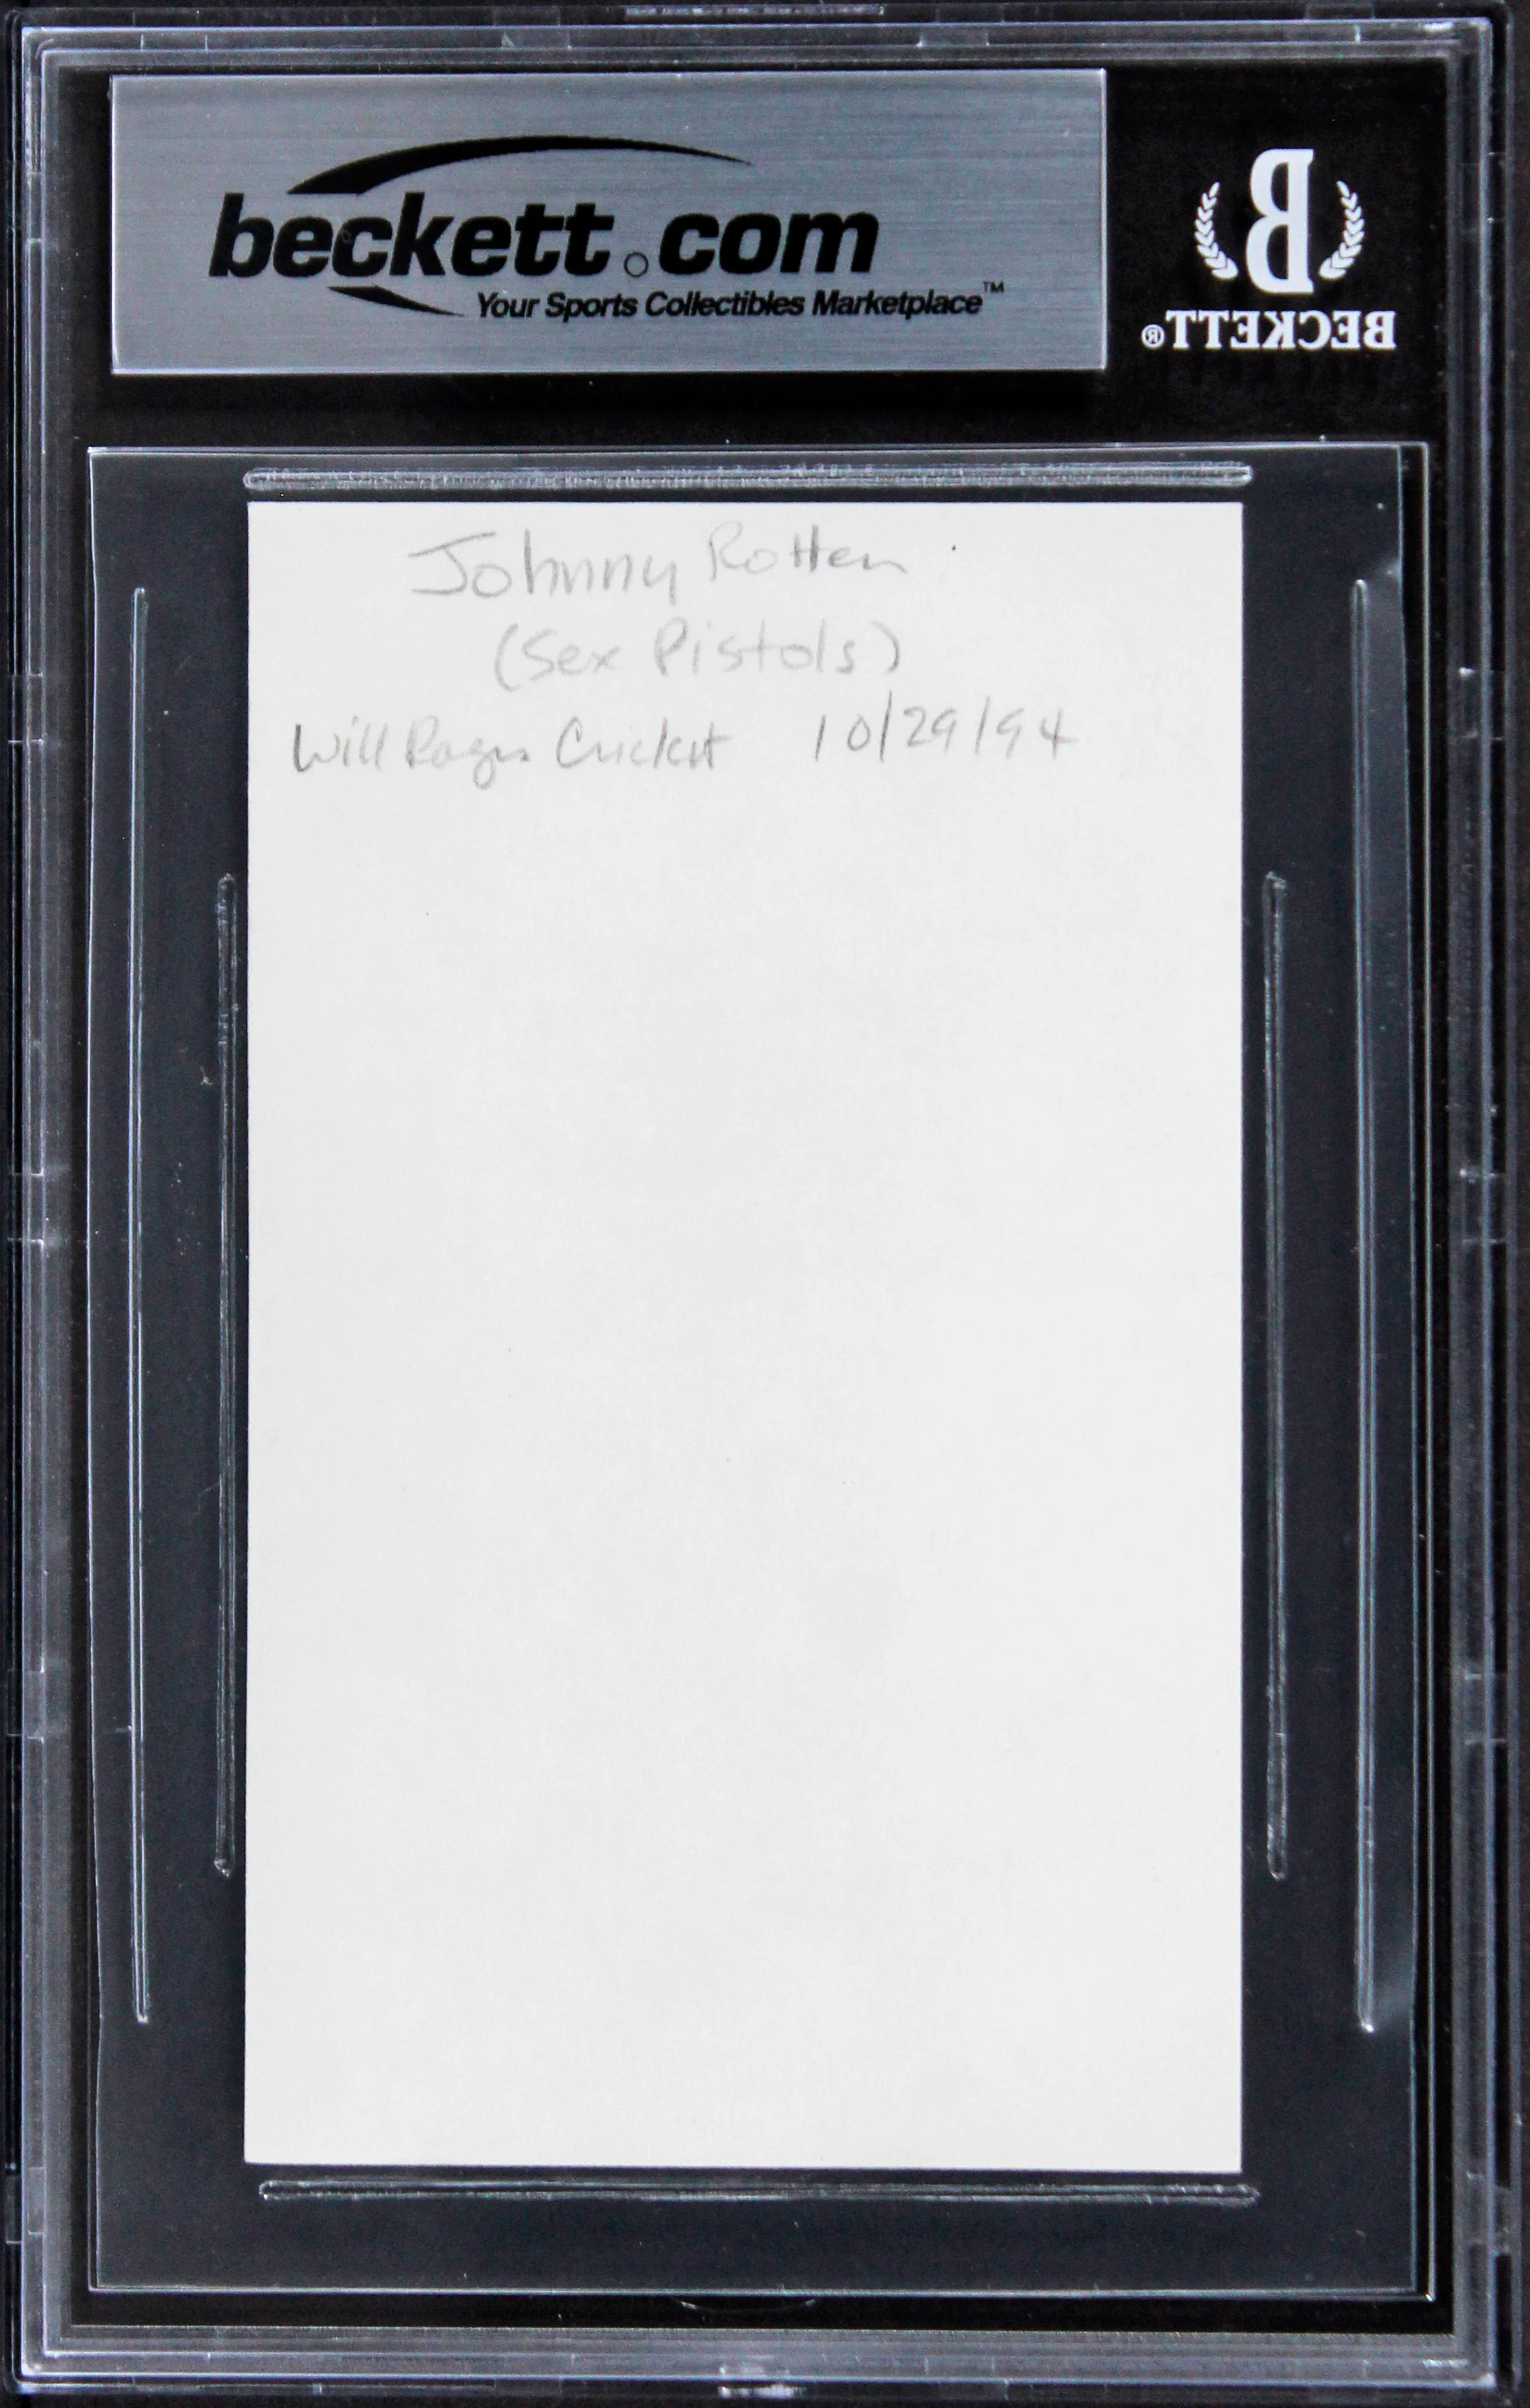 beckett.com
Your Sports Collectibles Marketplace™
BECKETT®
Johnny Rotten
(Sex Pistols)
Will Rogers Cricket 10/29/94